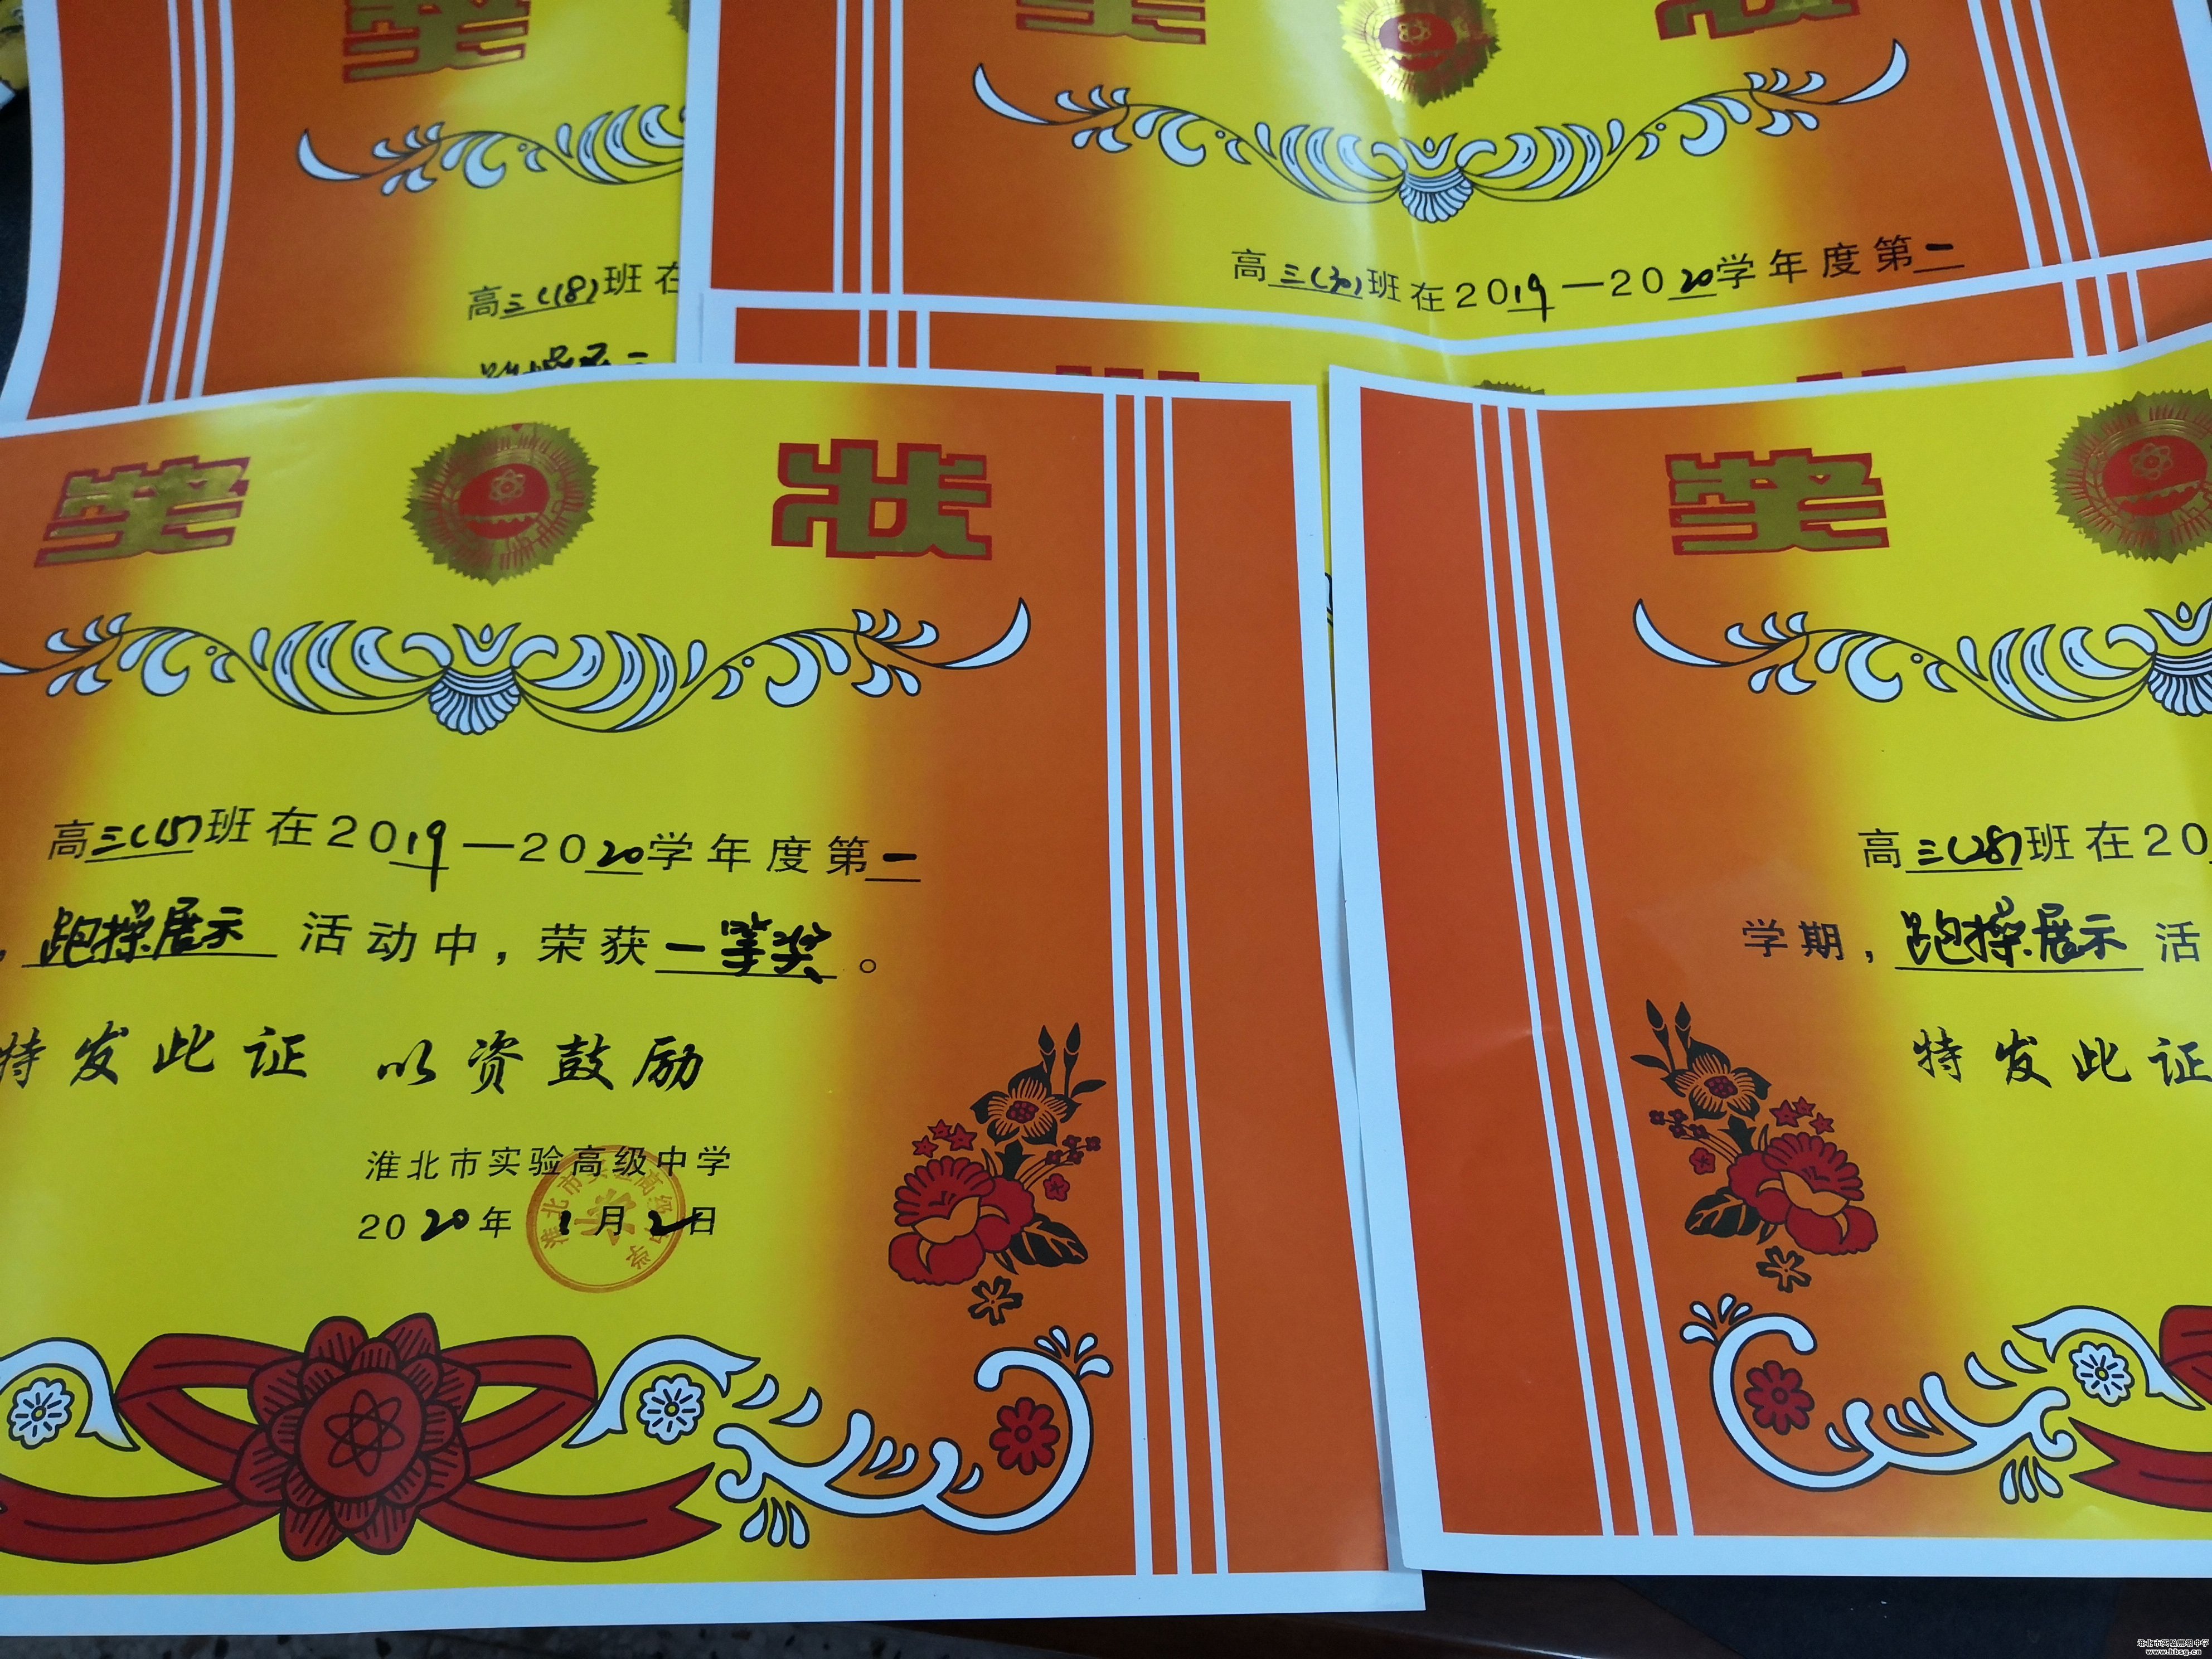 奖
高三(18)班在
奖 状
高三(30)班在2019—2020学年度第一
奖 状
高三(15)班在2019—2020学年度第一
，跑操展示 活动中，荣获一等奖。
特发此证 以资鼓励
淮北市实验高级中学
2020年1月2日
奖
高三(28)班在20
学期，跑操展示 活
特发此证
淮北市实验高级中学
www.hbsg.cn